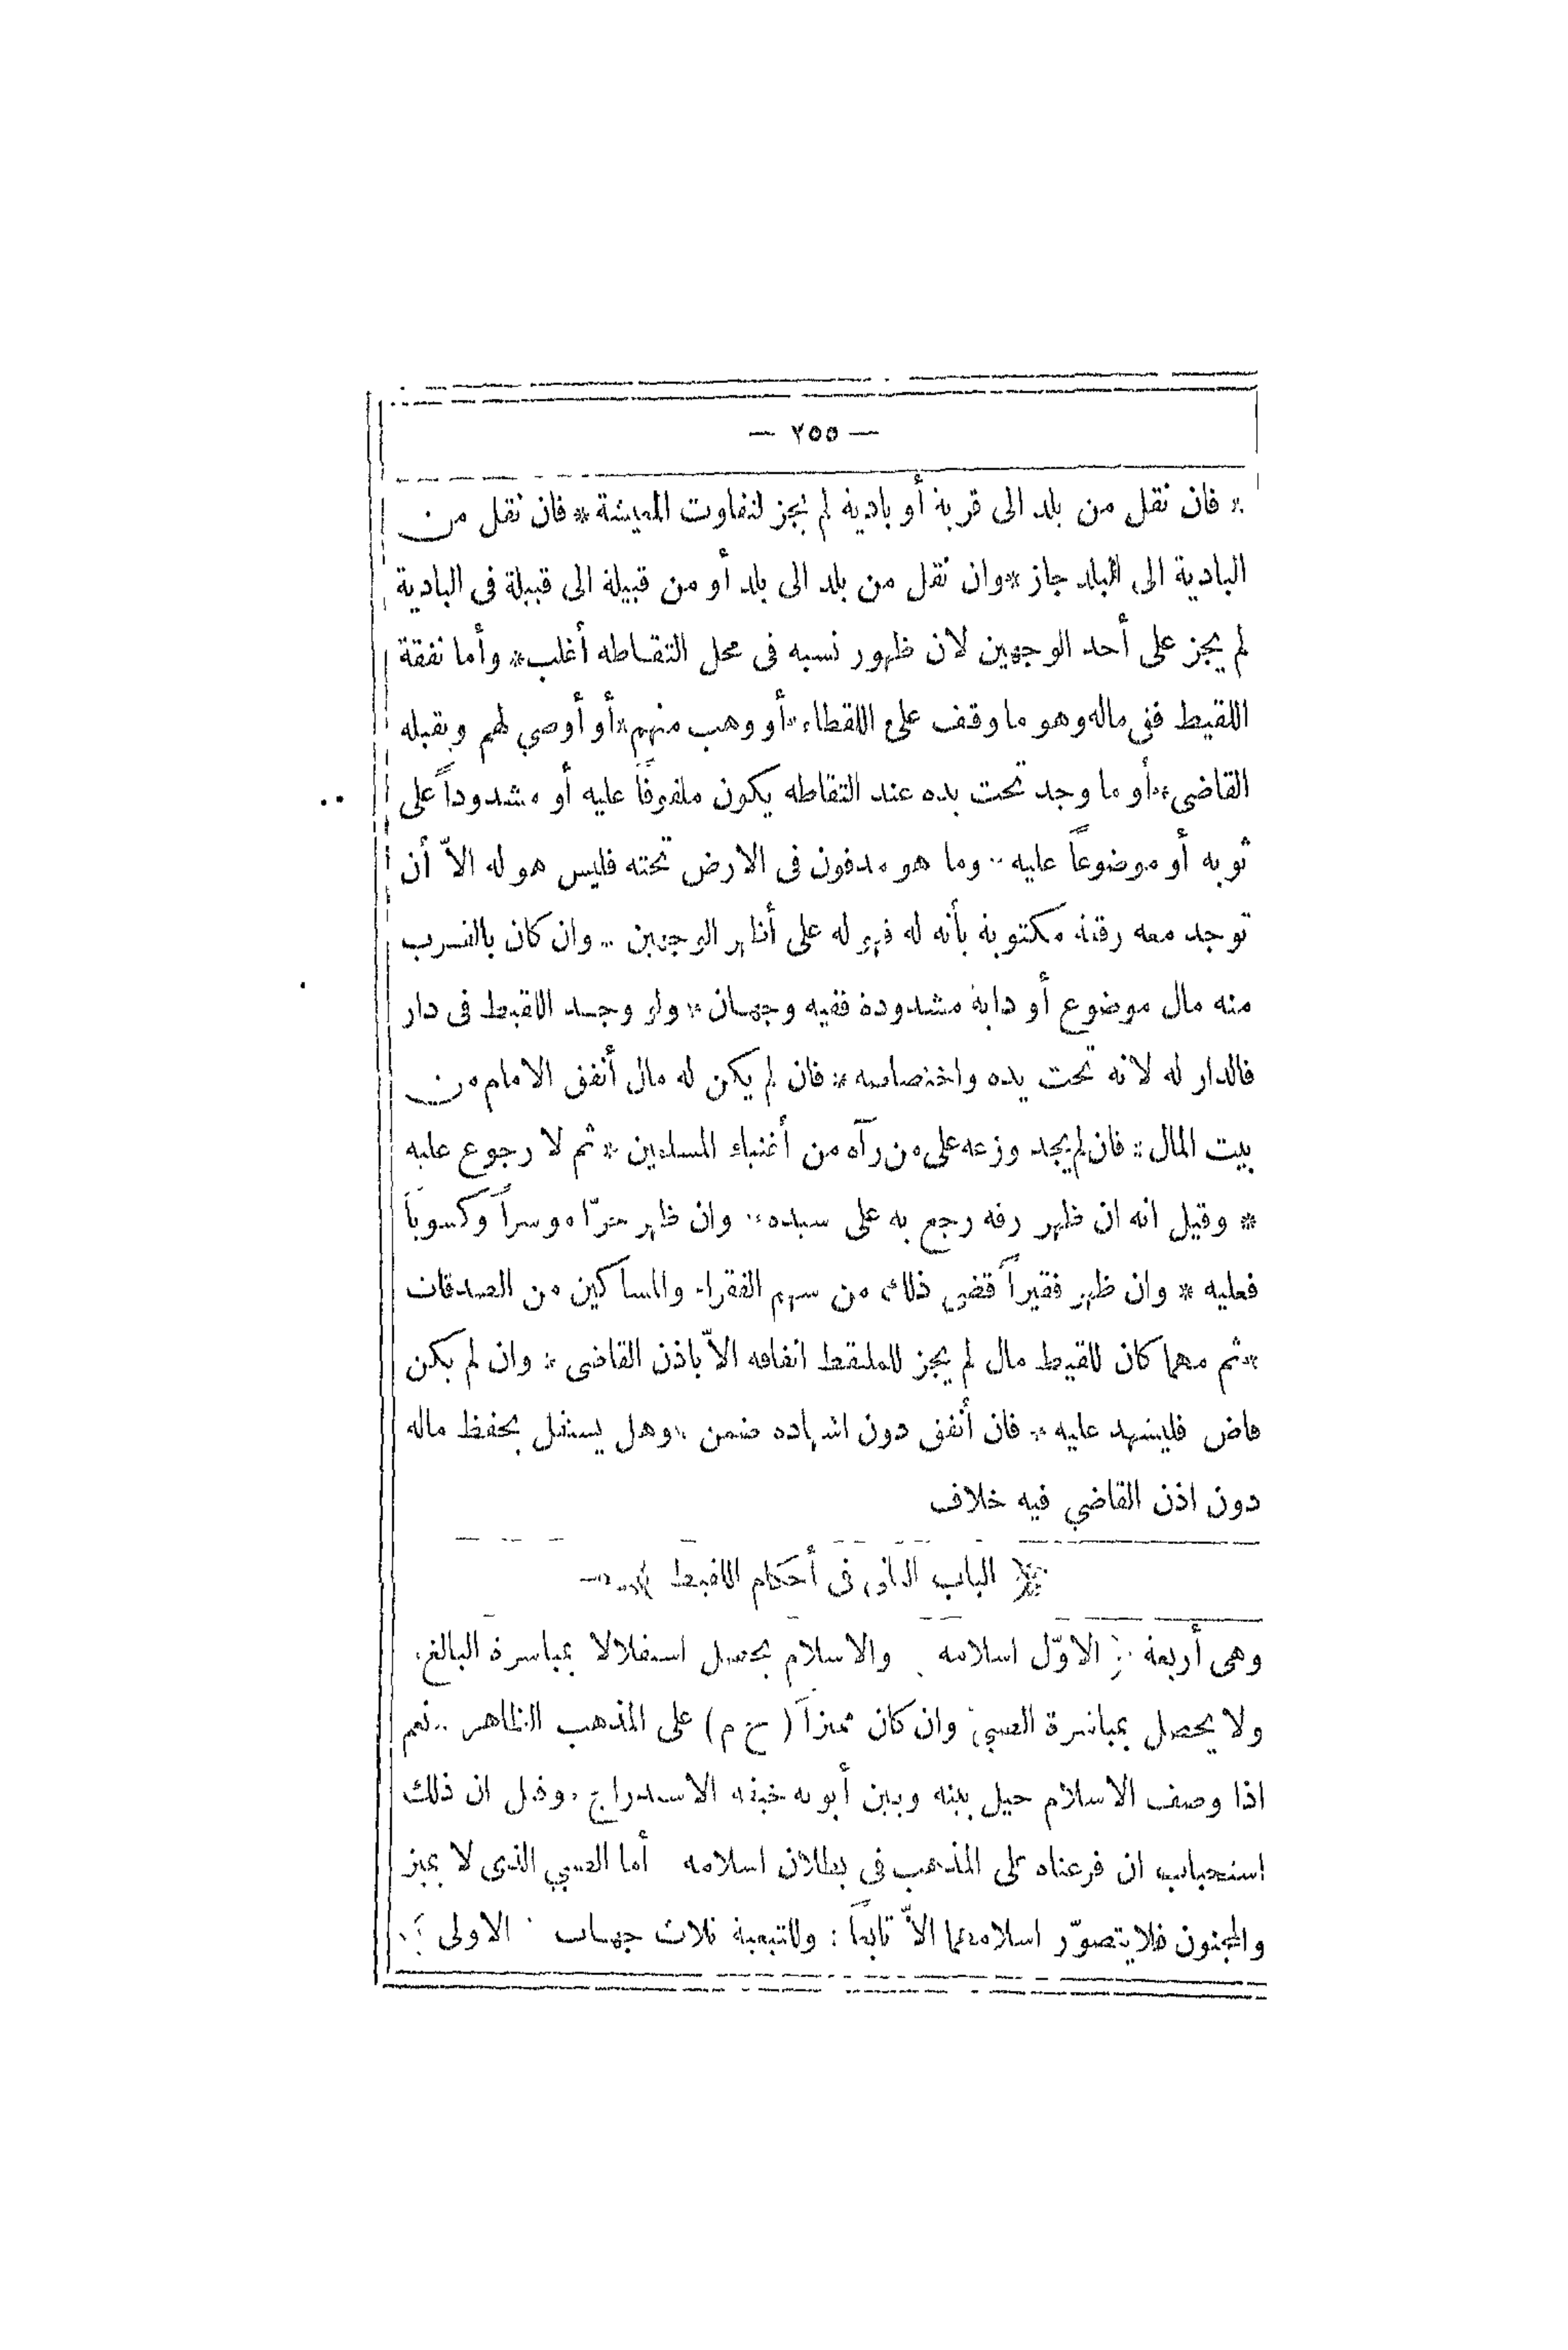 — ٢٥٥ —
* فان نقل من بلد الى قرية أو بادية لم يجز لتفاوت المعيشة * فان نقل من
البادية الى البلد جاز * وان نقل من بلد الى بلد أو من قبيلة الى قبيلة فى البادية
لم يجز على أحد الوجهين لان ظهور نسبه فى محل التقاطه أغلب * وأما نفقة
اللقيط ففى ماله وهو ما وقف على اللقطاء * أو وهب منهم * أو أوصي لهم ويقبله
القاضى * أو ما وجد تحت يده عند التقاطه يكون ملفوفاً عليه أو مشدوداً على
ثوبه أو موضوعاً عليه * وما هو مدفون فى الارض تحته فليس هو له الاّ أن
توجد معه رقعة مكتوبة بأنه له فهو له على أظهر الوجهين * وان كان بالقرب
منه مال موضوع أو دابة مشدودة ففيه وجهان * ولو وجد اللقيط فى دار
فالدار له لانه تحت يده واختصاصه * فان لم يكن له مال أنفق الامام من
بيت المال * فان لم يجد وزعه على من رآه من أغنياء المسلمين * ثم لا رجوع عليه
* وقيل انه ان ظهر رقه رجع به على سيده * وان ظهر حرّا موسراً وكسوباً
فعليه * وان ظهر فقيراً قضى ذلك من سهم الفقراء والمساكين من الصدقات
* ثم مهما كان للقيط مال لم يجز للملتقط انفاقه الاّ باذن القاضى * وان لم يكن
قاض فليشهد عليه * فان أنفق دون اشهاده ضمن * وهل يستقل بحفظ ماله
دون اذن القاضي فيه خلاف
الباب الثانى فى أحكام اللقيط
وهى أربعة * الاوّل اسلامه والاسلام يحصل استقلالا بمباشرة البالغ
ولا يحصل بمباشرة الصبي وان كان مميزاً ( ح م ) على المذهب الظاهر * نعم
اذا وصف الاسلام حيل بينه وبين أبويه خيفة الاستدراج * وقيل ان ذلك
استحباب ان فرعناه على المذهب فى بطلان اسلامه أما الصبي الذى لا يميز
والمجنون فلا يتصوّر اسلامهما الاّ تابعاً * وللتبعية ثلاث جهات الاولى